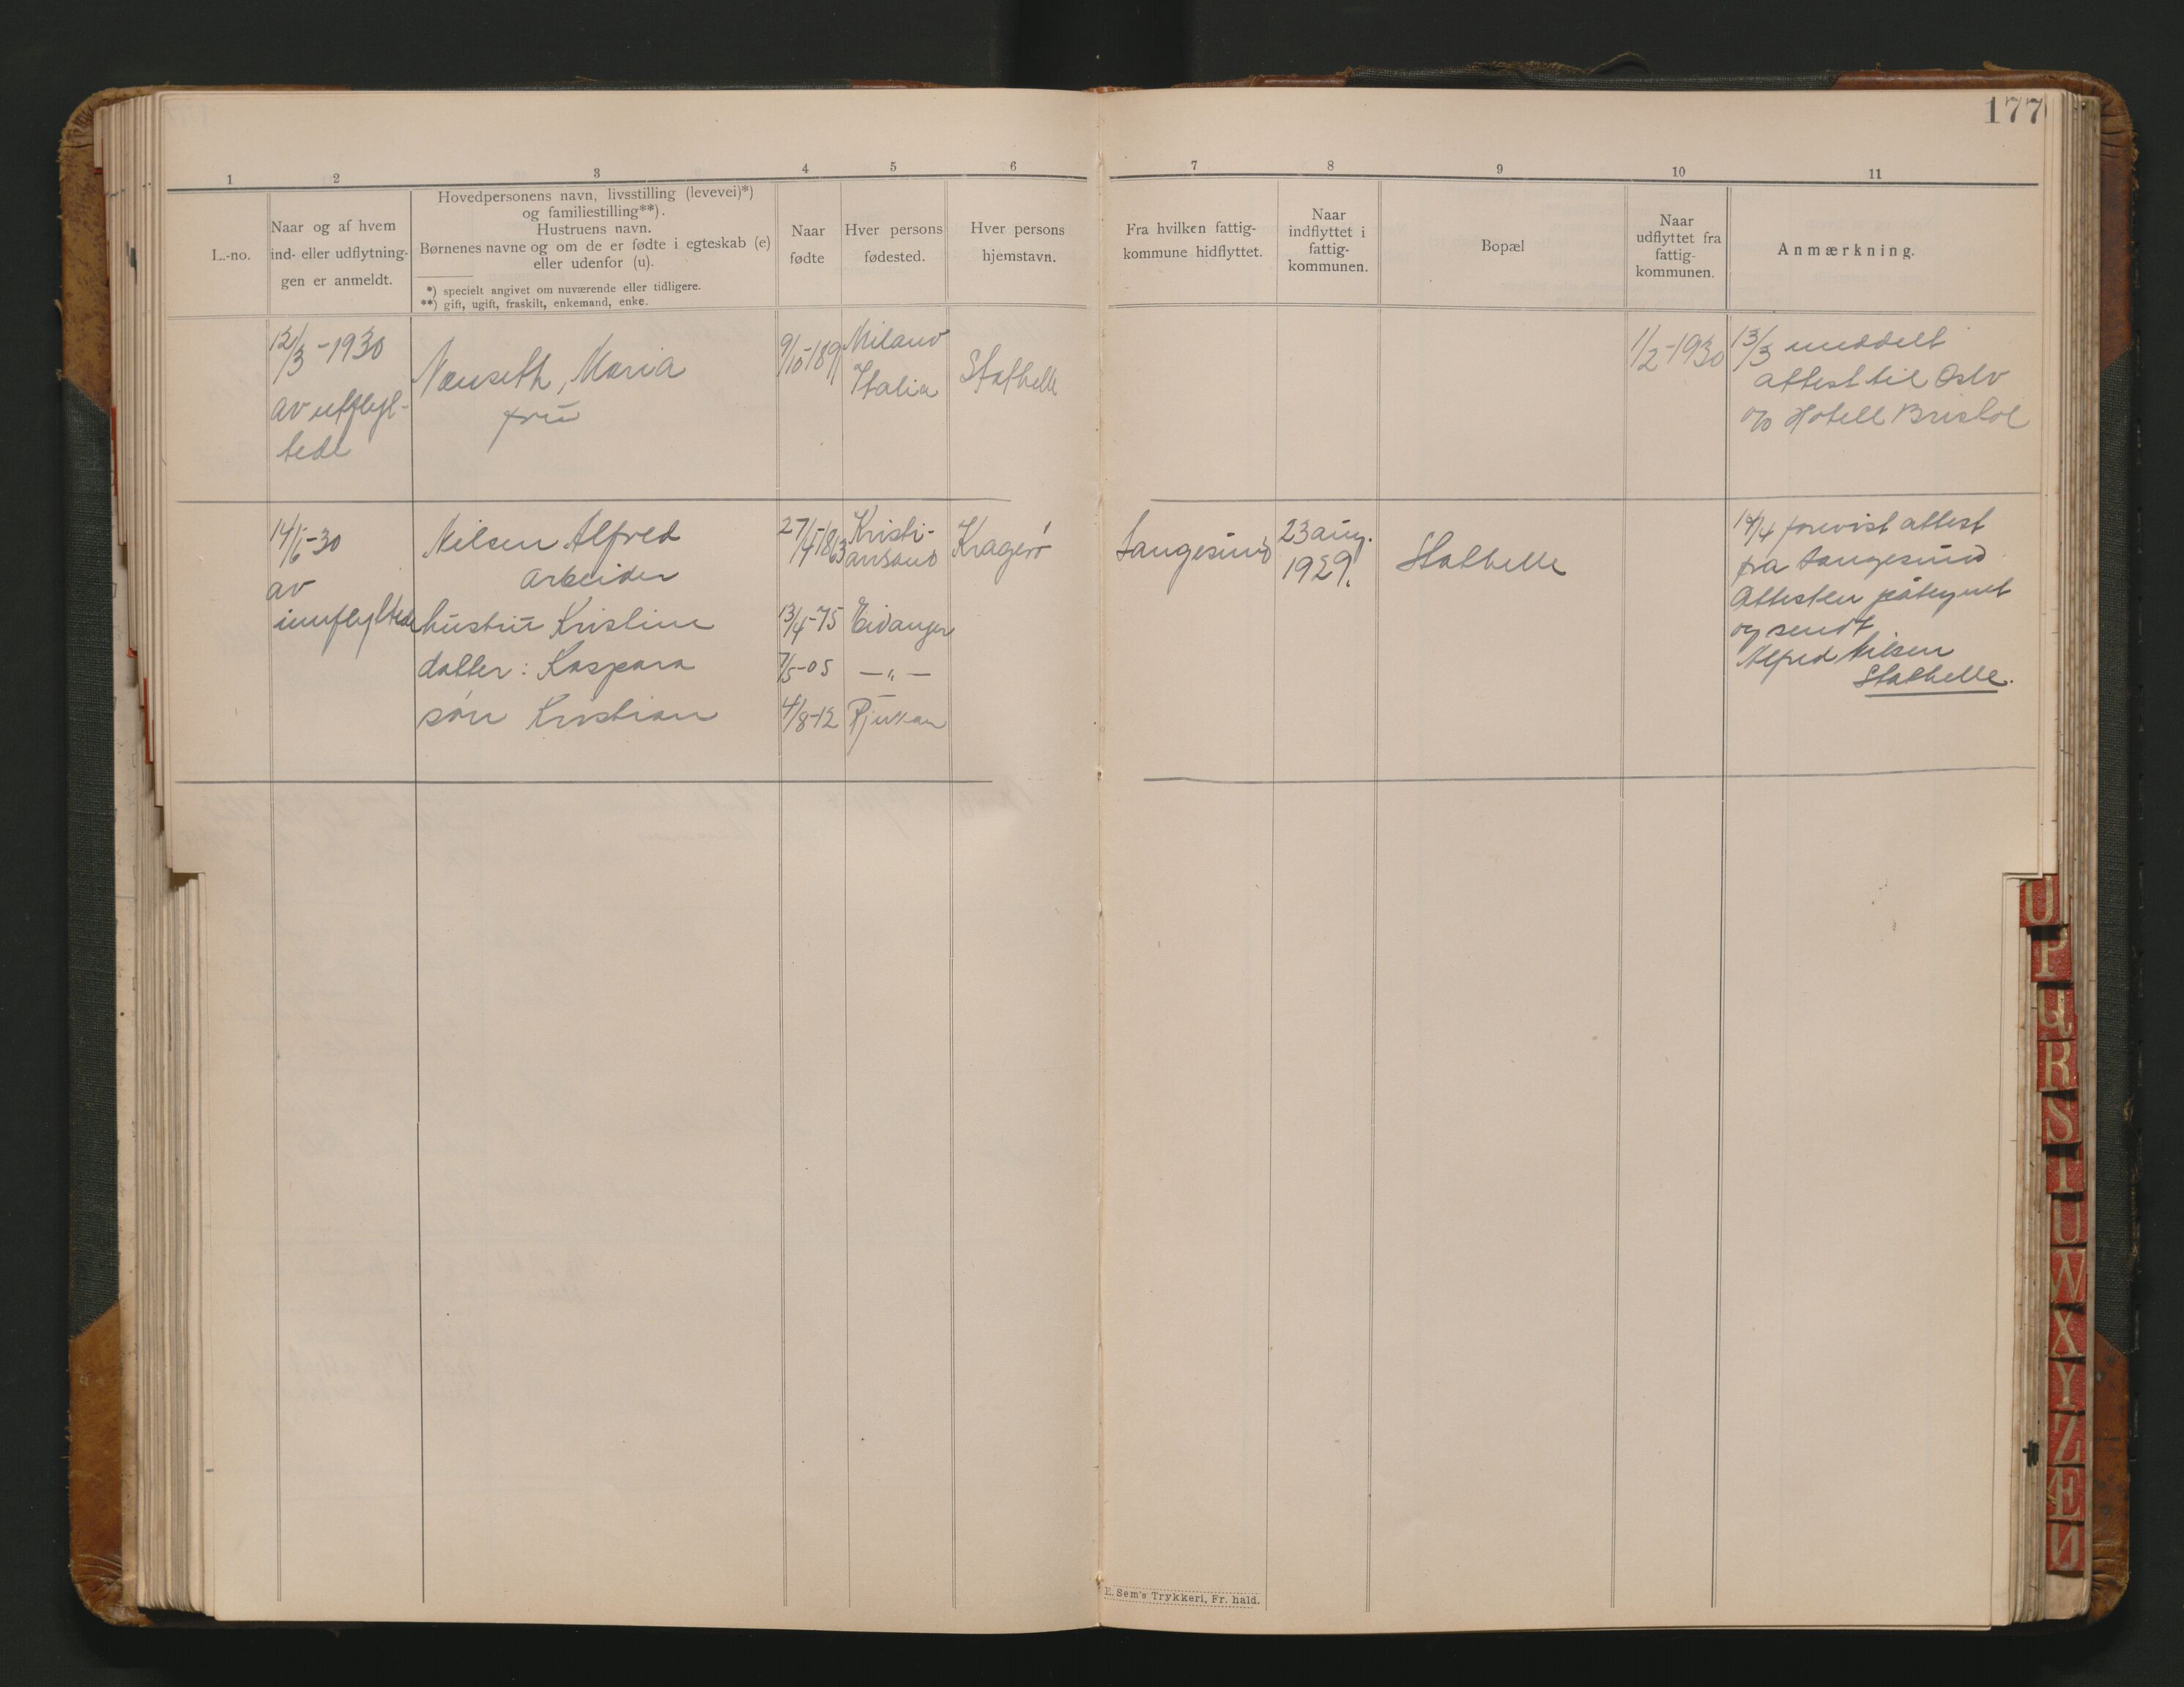 177
1 2 3 4 5 6 7 8 9 10 11
L.-no.
Naar og af hvem
ind- eller udflytnin-
gen er anmeldt.
Hovedpersonens navn, livsstilling (levevei)*)
og familiestilling**).
Hustruens navn.
Børnenes navne og om de er fødte i egteskab (e)
eller udenfor (u).
*) specielt angivet om nuværende eller tidligere.
**) gift, ugift, fraskilt, enkemand, enke.
Naar
fødte
Hver persons
fødested.
Hver persons
hjemstavn.
Fra hvilken fattig-
kommune hidflyttet.
Naar
indflyttet i
fattig-
kommunen.
Bopæl
Naar
udflyttet fra
fattig-
kommunen.
Anmærkning.
12/3-1930
av utflyt-
tede
Næuseth, Maria
frū
9/10-1891
Milano
Italia
Stathelle
1/2-1930
13/3 meddelt
attest til Oslo
c/o Hotell Bristol
14/6-30
av
innflyttede
Nilsen Alfred
Arbeider
hūstrū Kristine
datter: Kaspara
søn Kristian
27/4-1863
13/4-75
7/5-05
4/8-12
Kristi-
ansand
Eidanger
—"—
Rjukan
Kragerø
Langesund
23 aug.
1929.
Stathelle
14/4 forevist attest
fra Langesund
Attesten påtegnet
og sendt
Alfred Nilsen
Stathelle.
E. Sem's Trykkeri, Fr. hald.
O
P
Q
R
S
T
U
W
X
Y
Z
Æ
Ø